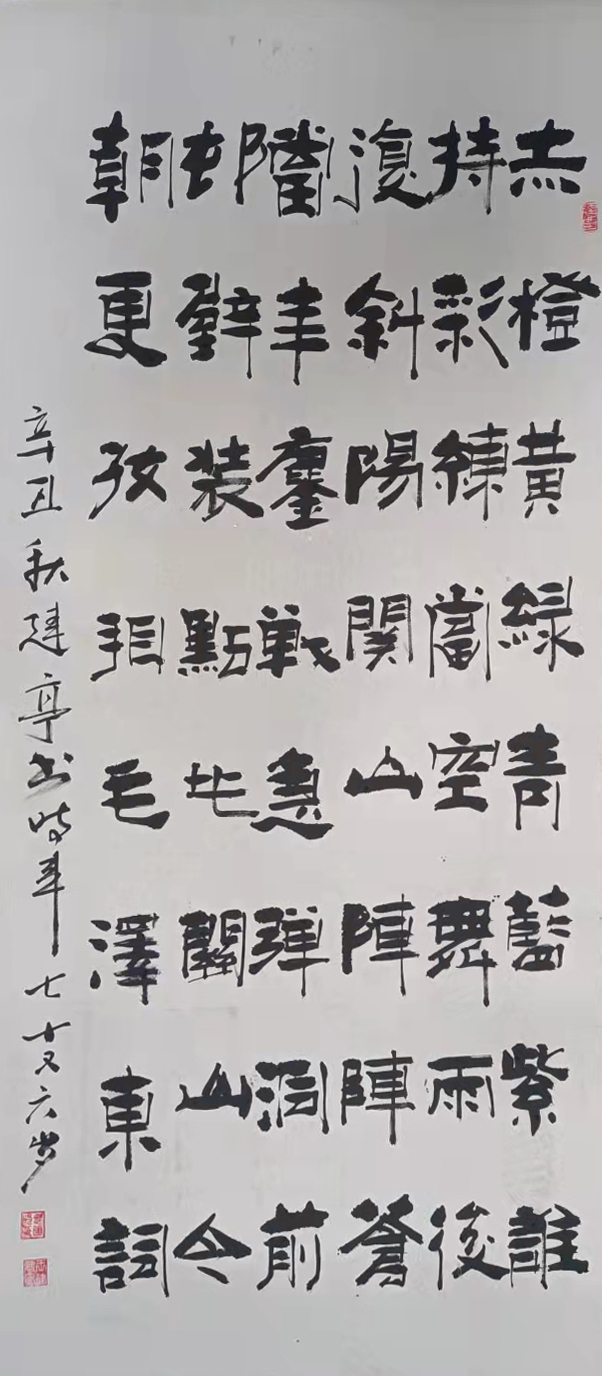 赤橙黃綠青藍紫誰
持彩練當空舞雨後
復斜陽關山陣陣蒼
當年鏖戰急彈洞前
邨壁裝點此關山今
朝更好看毛澤東詞
辛丑秋建亭书时年七十又六岁